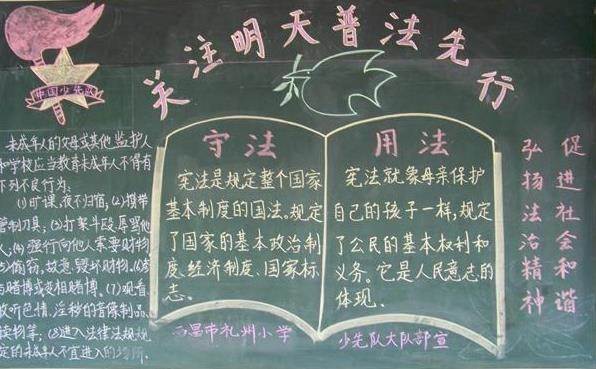 关注明天普法先行
中国少先队
未成年人的父母或其他监护人
和学校应当教育未成年人不得有
下列不良行为:
(1)旷课、夜不归宿,(2)携带
管制刀具;(3)打架斗殴、辱骂他
人,(4)强行向他人索要财物
(5)偷窃、故意毁坏财物。(6)参
与赌博或变相赌博、(7)观看、
收听色情、淫秽的音像制品、
读物等;(8)进入法律法规规
定的未成年人不宜进入的场所.
守法
宪法是规定整个国家
基本制度的国法。规定
了国家的基本政治制
度、经济制度、国家标
志。
西昌市礼州小学
用法
宪法就象母亲保护
自己的孩子一样,规定
了公民的基本权利和
义务。它是人民意志的
体现.
少先队大队部宣
促进社会和谐
弘扬法治精神